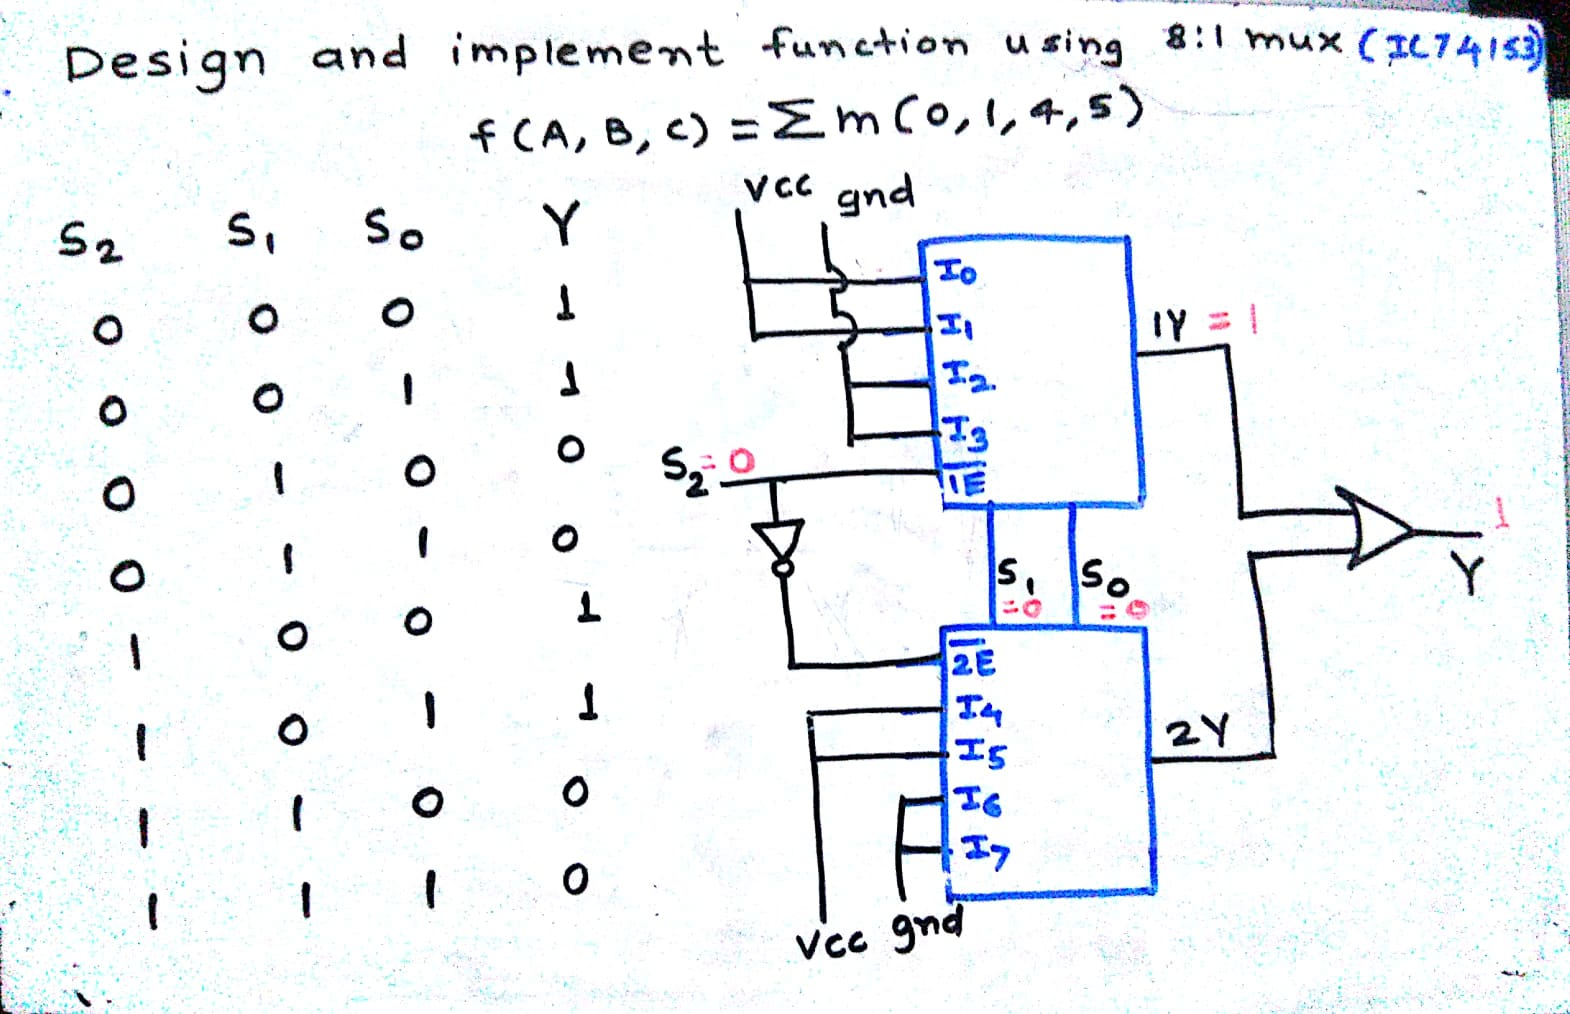 Design and implement function using 8:1 mux (IC74153)
f(A, B, C) = Σm(0, 1, 4, 5)
S2 S1 S0 Y
0 0 0 1
0 0 1 1
0 1 0 0
0 1 1 0
1 0 0 1
1 0 1 1
1 1 0 0
1 1 1 0
Vcc gnd
I0
I1
I2
I3
1E̅
1Y = 1
S2 = 0
S1 = 0
S0 = 0
2E̅
I4
I5
I6
I7
2Y
Vcc gnd
1
Y